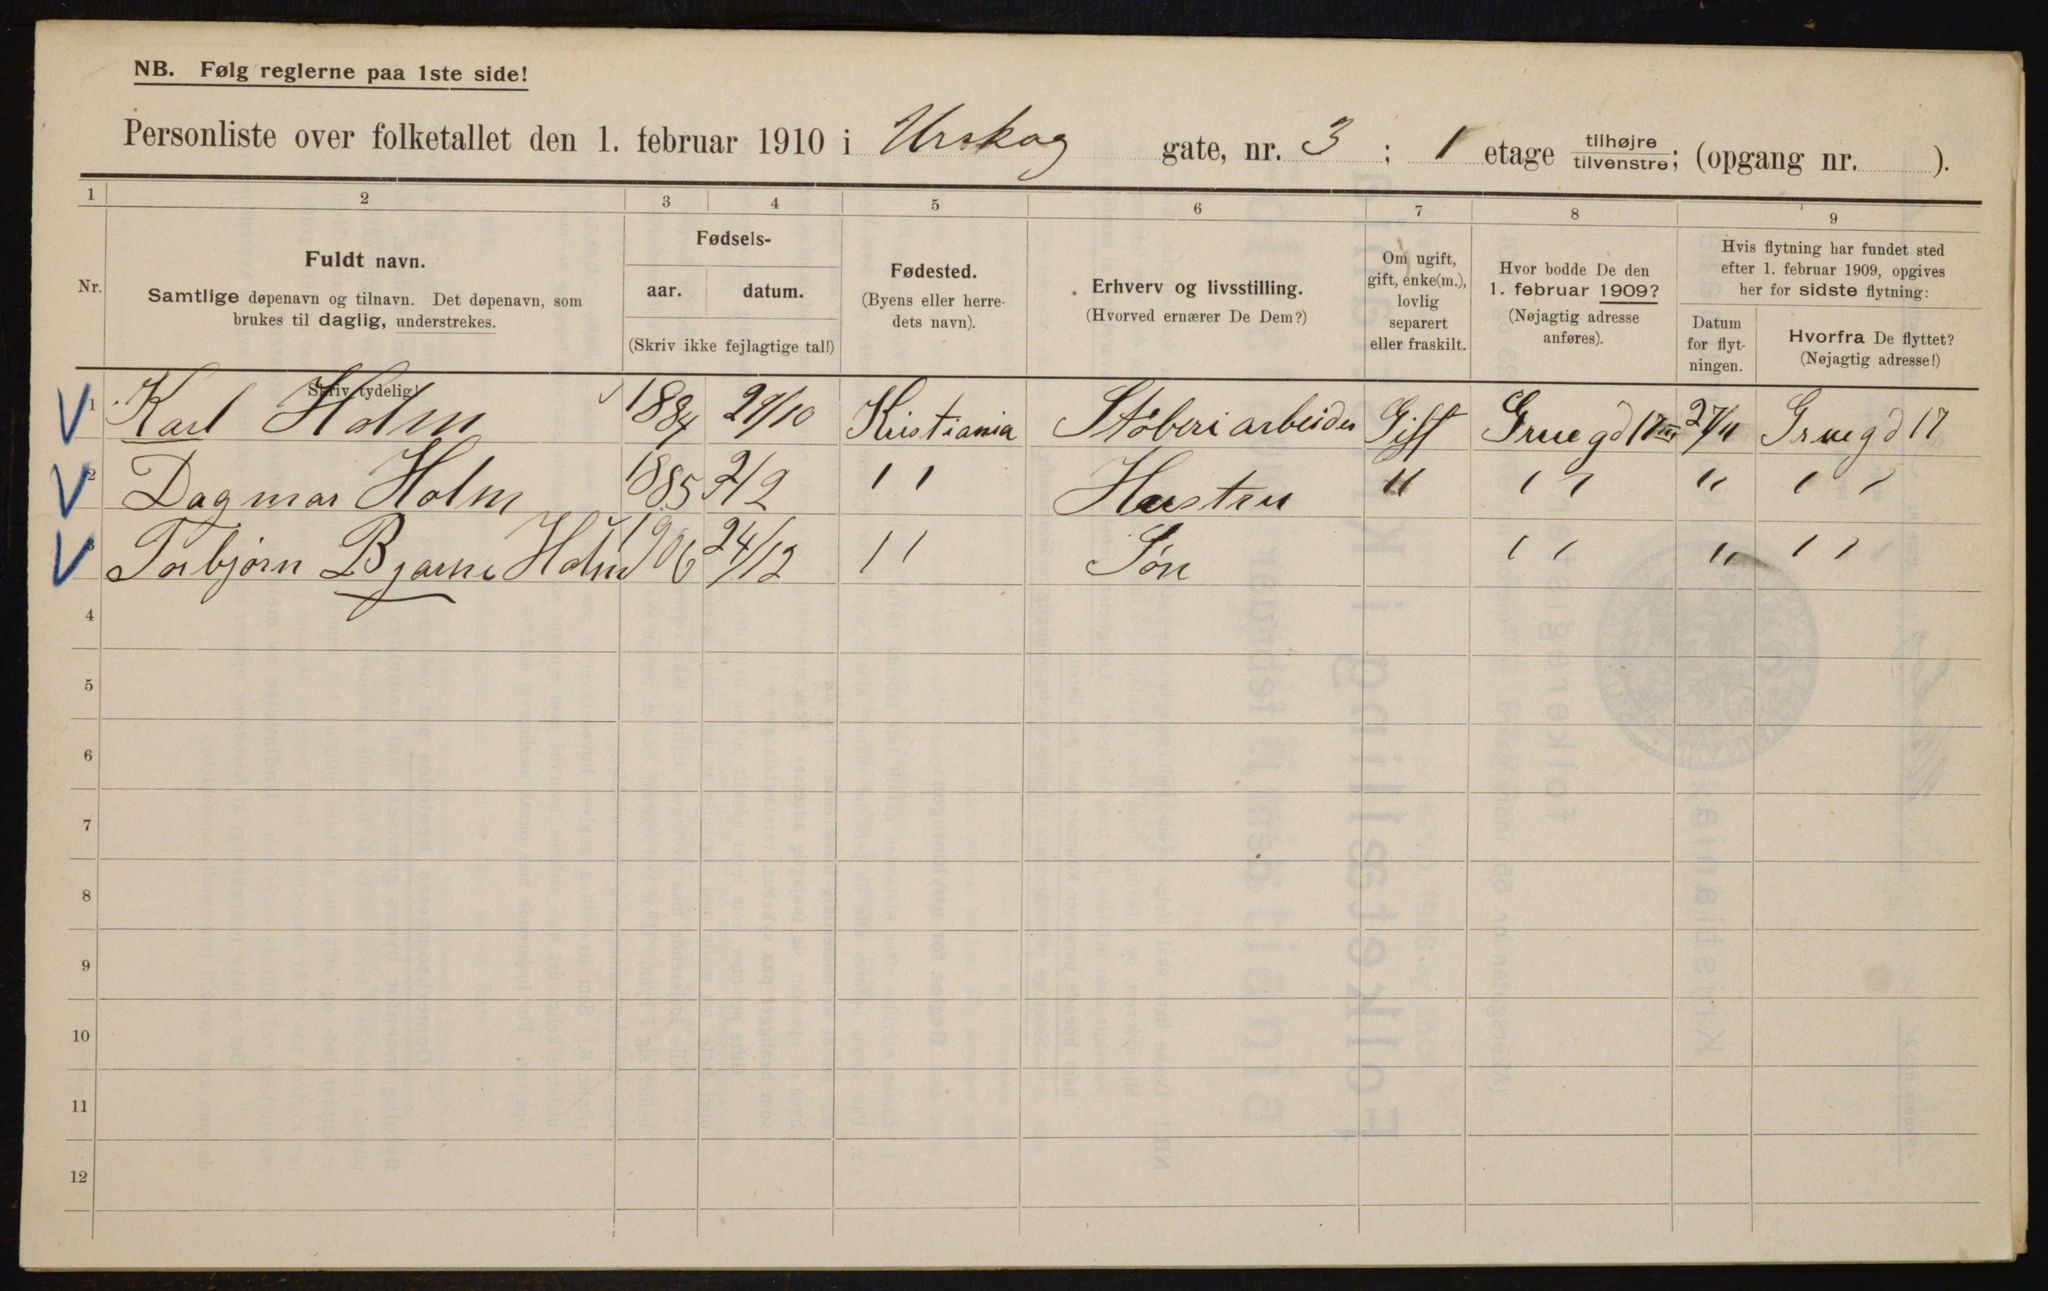 NB. Følg reglerne paa 1ste side!
Personliste over folketallet den 1. februar 1910 i Urskog gate, nr. 3 ; 1 etage tilhøjre tilvenstre; (opgang nr. ).
1 2 3 4 5 6 7 8 9
Nr.
Fuldt navn.
Samtlige døpenavn og tilnavn. Det døpenavn, som
brukes til daglig, understrekes.
Skriv tydelig!
Fødsels-
aar. datum.
(Skriv ikke fejlagtige tal!)
Fødested.
(Byens eller herre-
dets navn).
Erhverv og livsstilling.
(Hvorved ernærer De Dem?)
Om ugift,
gift, enke(m.),
lovlig
separert
eller fraskilt.
Hvor bodde De den
1. februar 1909?
(Nøjagtig adresse
anføres).
Hvis flytning har fundet sted
efter 1. februar 1909, opgives
her for sidste flytning:
Datum
for flyt-
ningen.
Hvorfra De flyttet?
(Nøjagtig adresse!)
1 Karl Holm 1884 29/10 Kristiania Støberiarbeider Gift Gruegd 17 III 27/11 Gruegd 17
2 Dagmar Holm 1885 2/2 " Hustru " " " "
3 Torbjørn Bjarne Holm 1906 24/12 " Søn " " "
4
5
6
7
8
9
10
11
12